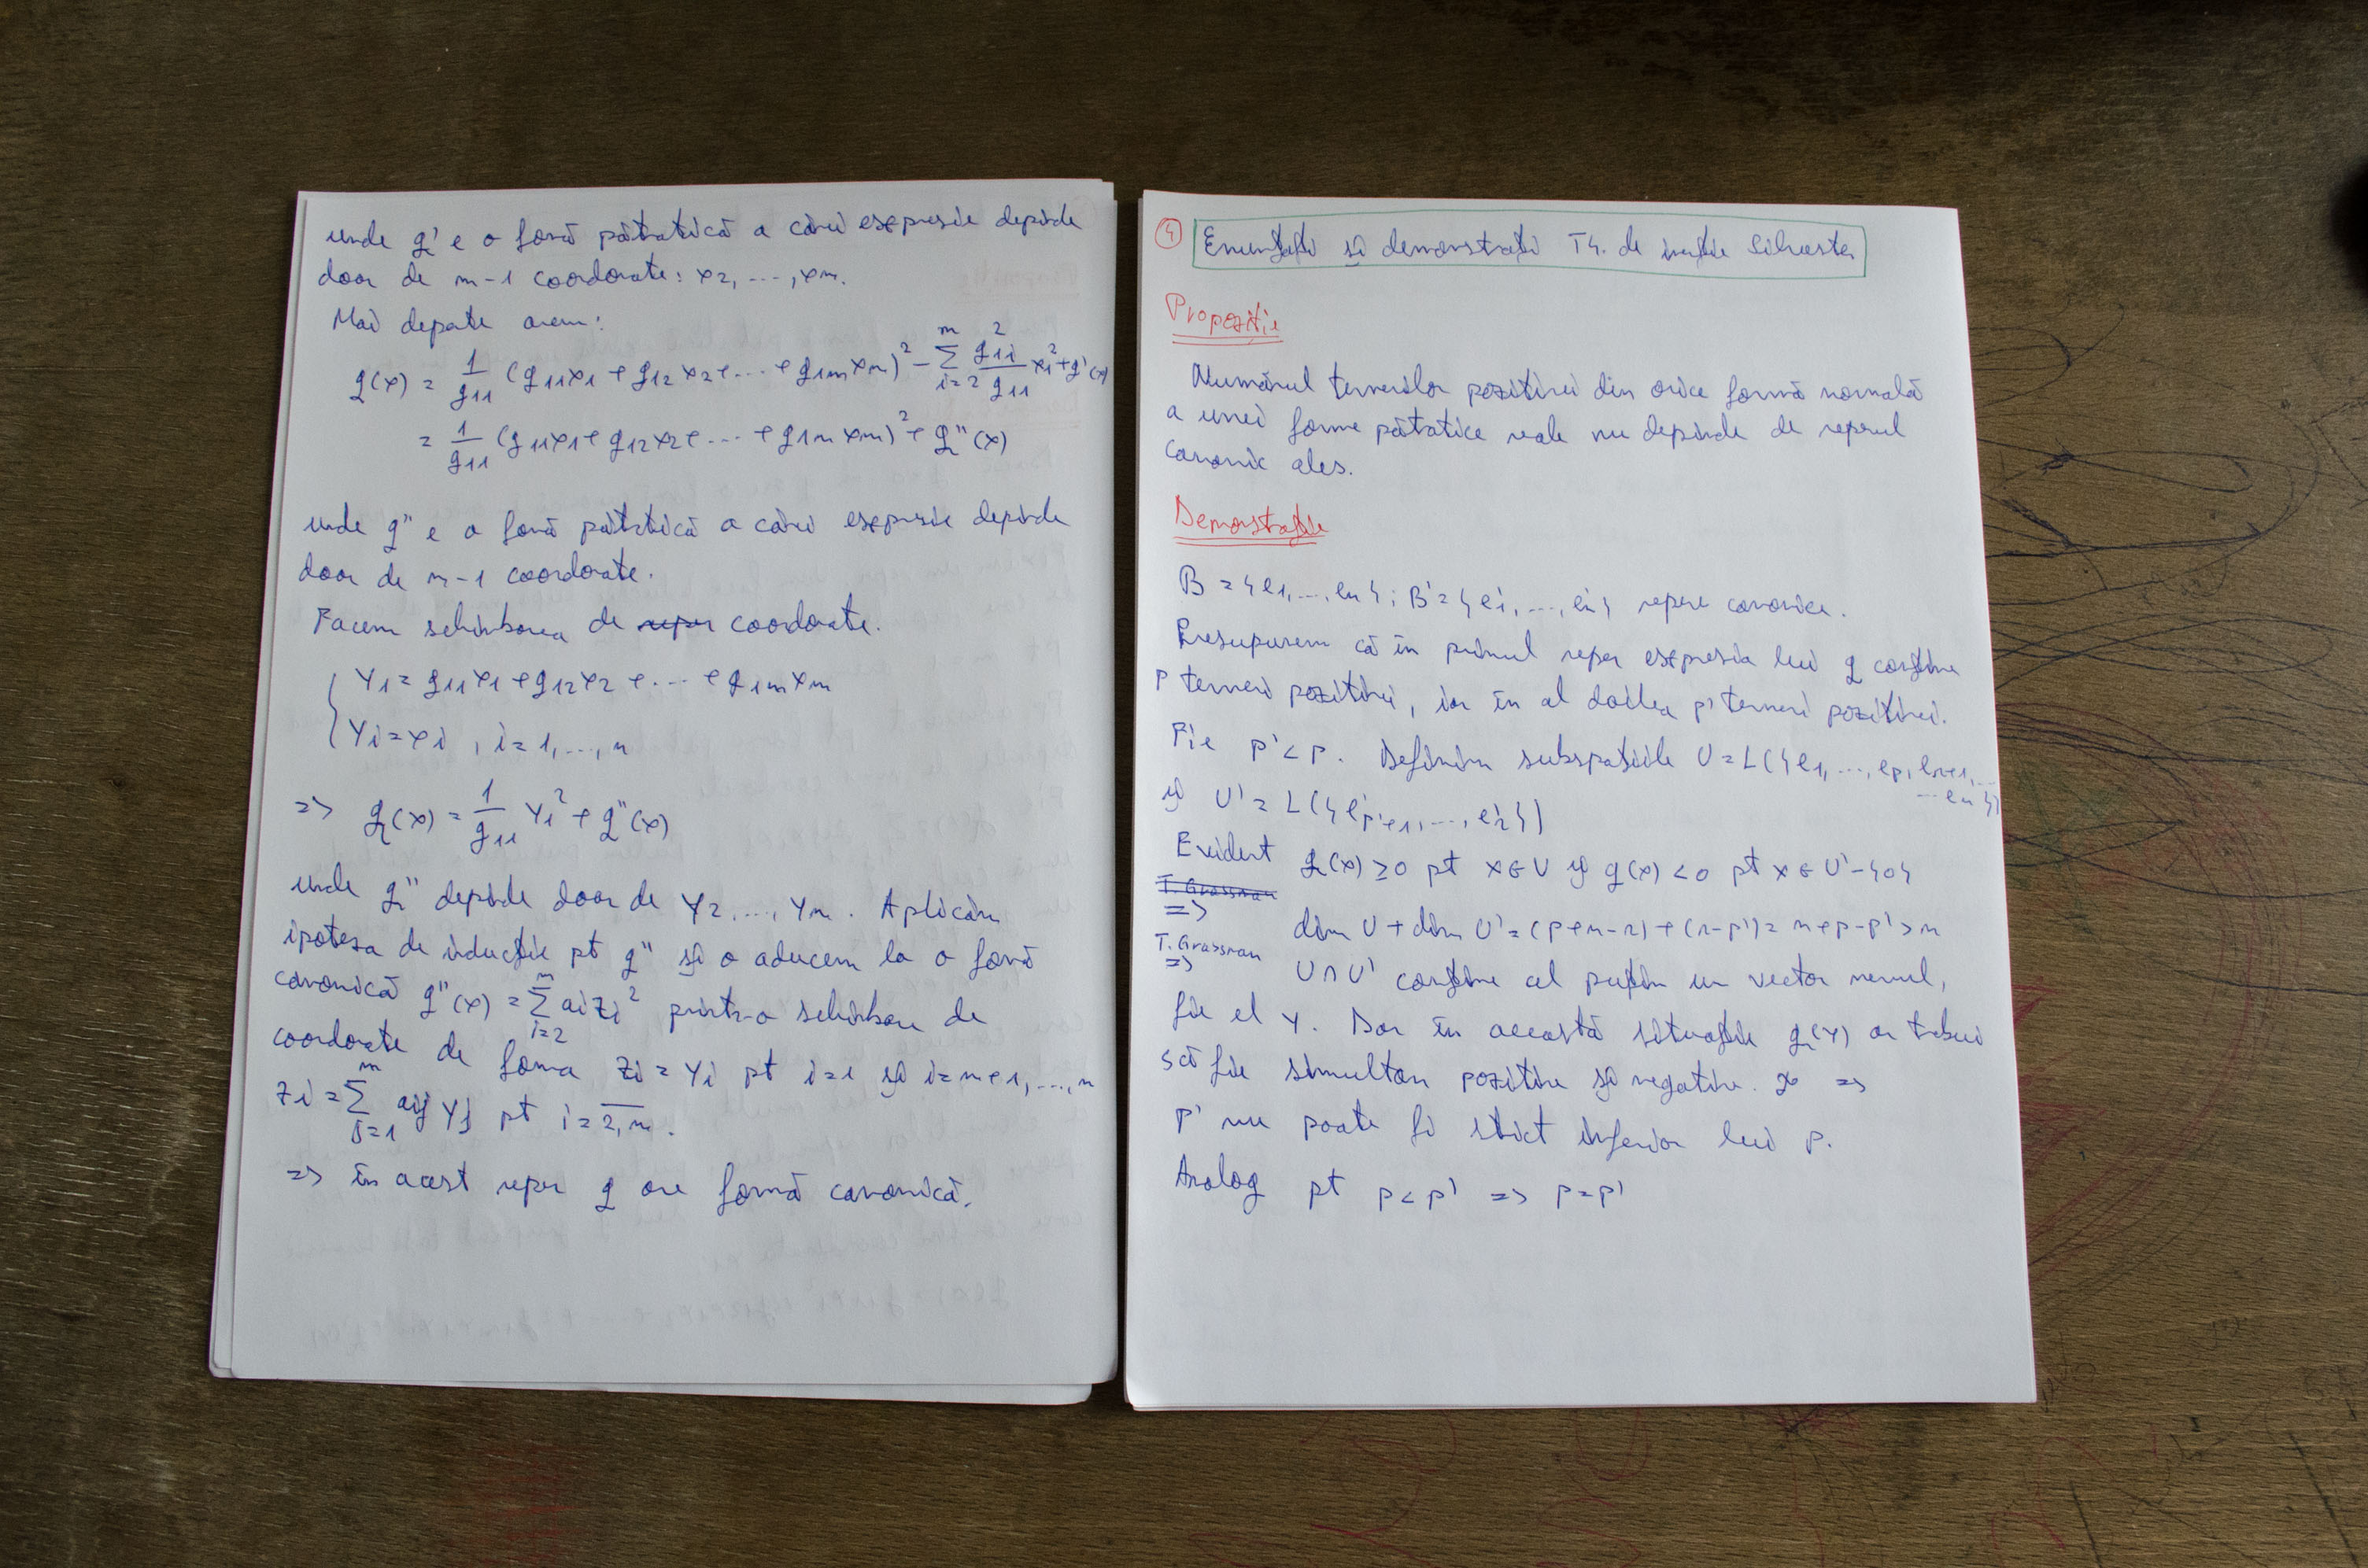 unde g' e o formă pătratică a cărei expresie depinde
doar de m-1 coordonate: x2, ..., xm.
Mai departe avem:
g(x) = 1/g11 (g11x1 + g12x2 + ... + g1mxm)² - Σ_{i=2}^{m} g1i²/g11 xi² + g'(x)
= 1/g11 (g11x1 + g12x2 + ... + g1mxm)² + g''(x)
unde g'' e o formă pătratică a cărei expresie depinde
doar de m-1 coordonate.
Facem schimbarea de reper coordonate.
{ Y1 = g11x1 + g12x2 + ... + g1mxm
Yi = xi, i = 1, ..., n
=> g(x) = 1/g11 Y1² + g''(x)
unde g'' depinde doar de Y2, ..., Ym. Aplicăm
ipoteza de inducție pt g'' și o aducem la o formă
canonică g''(x) = Σ_{i=2}^{m} aizi² printr-o schimbare de
coordonate de forma zi = Yi pt i=1 și i=m+1, ..., n
zi = Σ_{j=1}^{m} aij Yj pt i = 2,m.
=> în acest reper g are formă canonică.
4 Enunțați și demonstrați Th. de inerție Silvester
Propoziție
Numărul termenilor pozitivi din orice formă normală
a unei forme pătratice reale nu depinde de reperul
canonic ales.
Demonstrație
B = {e1, ..., en}; B' = {e'1, ..., e'n} repere canonice.
Presupunem că în primul reper expresia lui g conține
p termeni pozitivi, iar în al doilea p' termeni pozitivi.
Fie p' < p. Definim subspațiile U = L({e1, ..., ep, er+1, ...
... en})
și U' = L({e'p'+1, ..., e'r})
Evident g(x) ≥ 0 pt x ∈ U și g(x) < 0 pt x ∈ U' - {0}
T. Grassman
=> dim U + dim U' = (p+n-r) + (r-p') = n+p-p' > n
T. Grassman
=> U ∩ U' conține cel puțin un vector nenul,
fie el Y. Dar în această situație g(Y) ar trebui
să fie simultan pozitiv și negativ. =>
p' nu poate fi strict inferior lui p.
Analog pt p < p' => p = p'